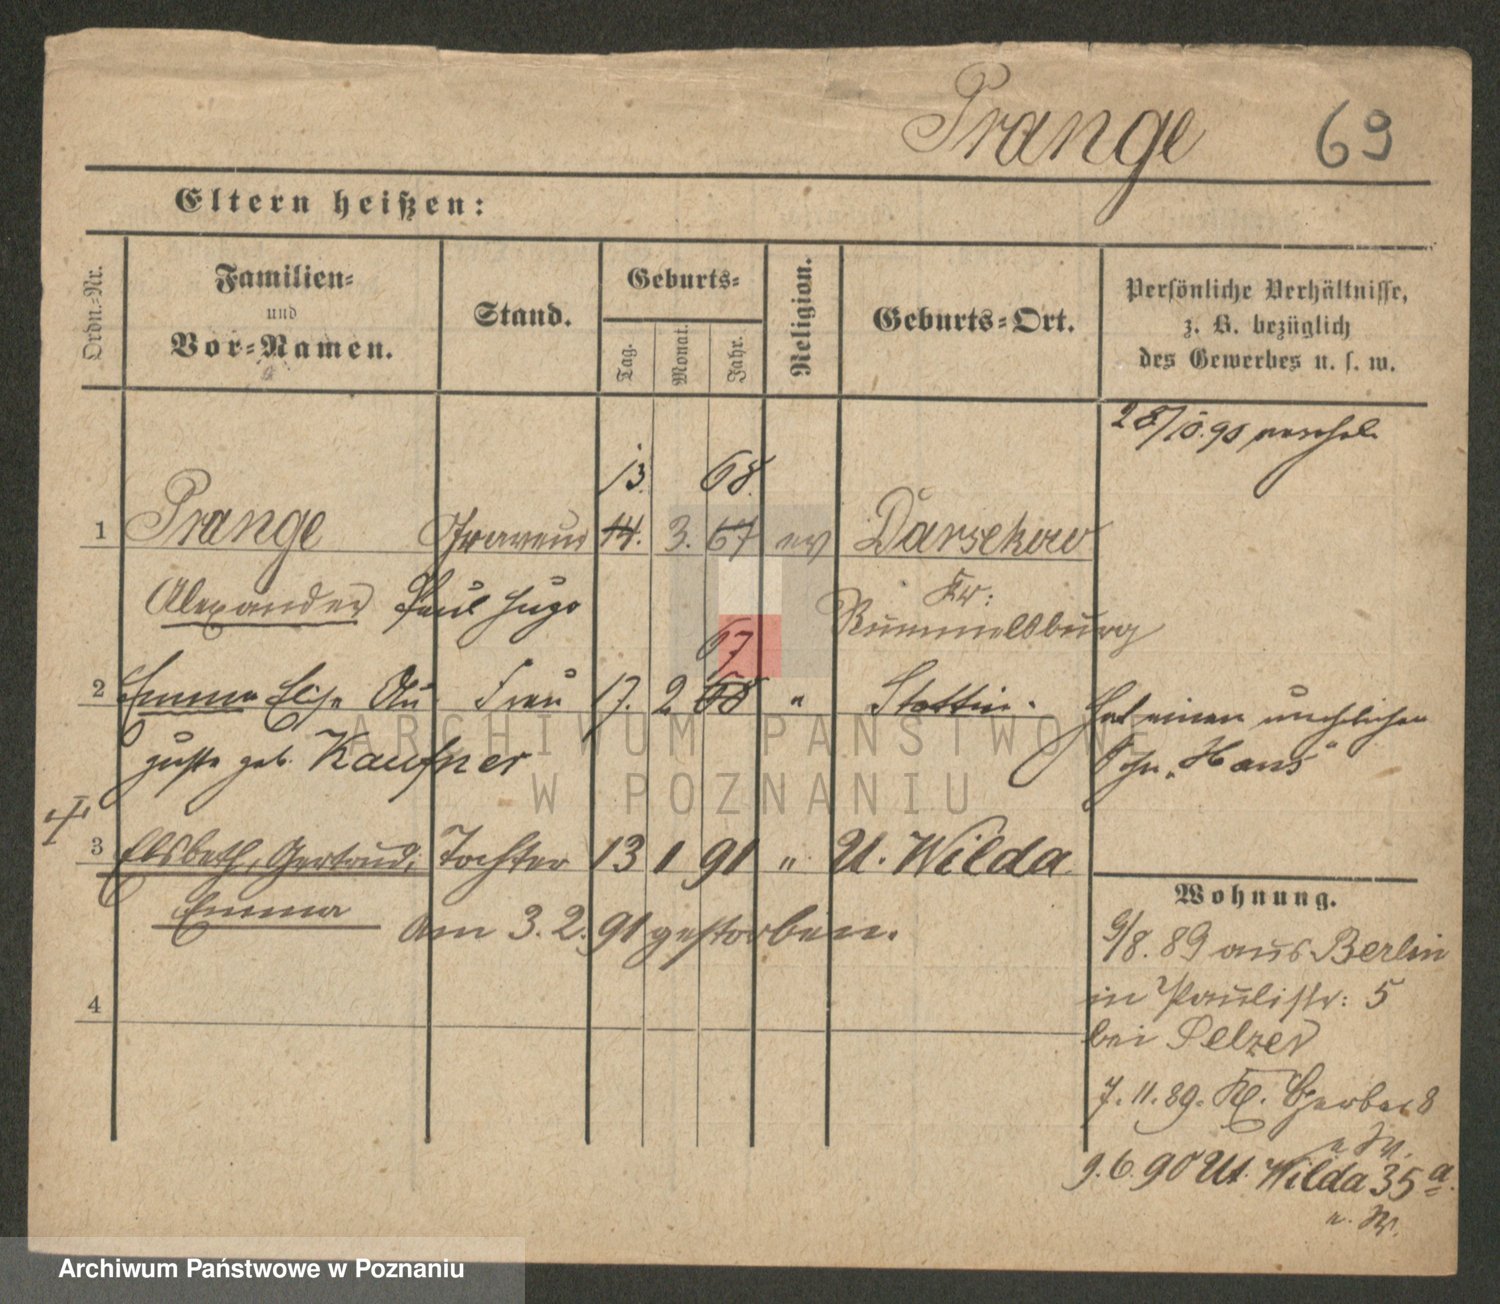 Prange 69
Eltern heißen:
Ordn.-Nr.
Familien-
und
Vor-Namen.
Stand.
Geburts-
Tag.
Monat.
Jahr.
Religion.
Geburts-Ort.
Persönliche Verhältnisse,
z. B. bezüglich
des Gewerbes u. s. w.
28/10.90
13. 68.
1 Prange Graveur 14. 3. 67 ev Darsekow
Alexander Paul Hugo
Kr:
Rummelsburg
67
2 Emma Elise Au- Frau 17. 2 68 " Stettin. Hat einen unehelichen
guste geb. Kaufner Sohn „Hans"
3 Elsbeth, Gertrud, Tochter 13 1 91 " U. Wilda
Emma
am 3. 2. 91 gestorben.
4
Wohnung.
9/8. 89 aus Berlin
in Paulistr: 5
bei Pelzer
7. 11. 89. Kl. Gerber 8
u. W.
9. 6. 90 Ut. Wilda 35 a.
u. W.
ARCHIWUM PAŃSTWOWE
W POZNANIU
Archiwum Państwowe w Poznaniu